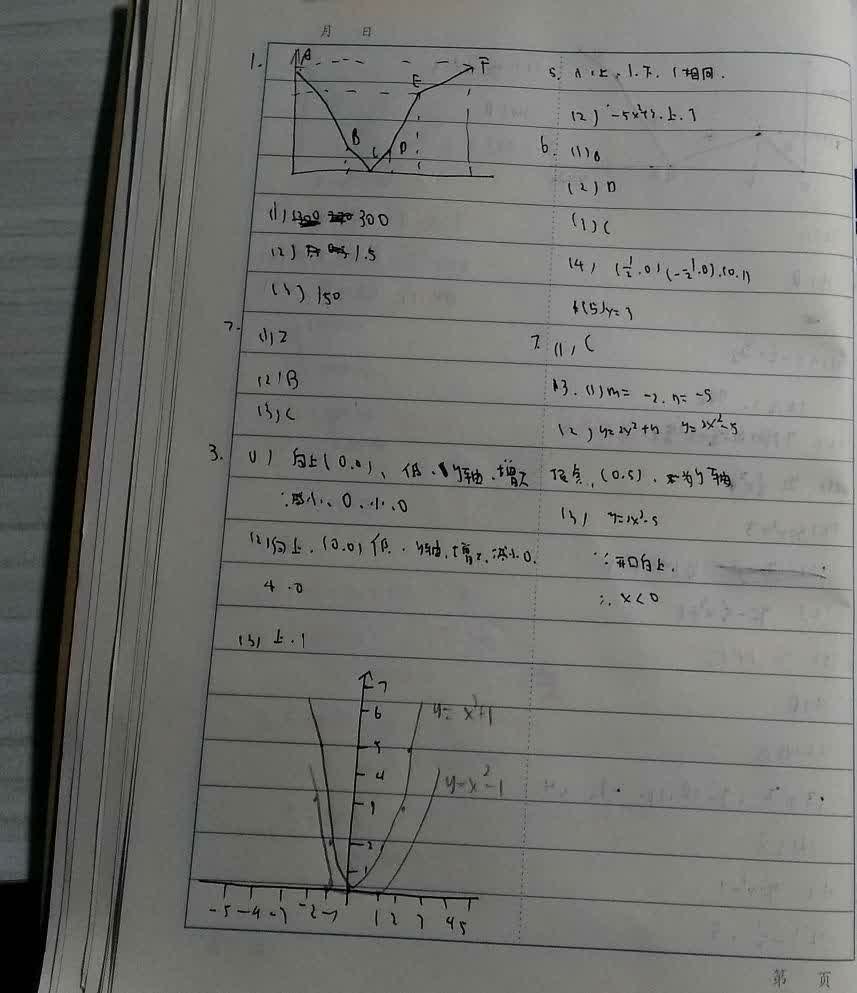 月 日
1.
A
F
E
B
C
D
(1) 300
(2) 1.5
(3) 150
2.
(1) 2
(2) B
(3) C
3.
(1) 向上 (0.0)、低、y轴、增大
减小、0、小、0
(2) 向上、(0.0) 低、y轴、增大、减小、0.
4.0
(3) 上.1
7
6
5
4
3
2
1
y=x²+1
y=x²-1
-5 -4 -3 -2 -1 1 2 3 4 5
5. 上.1.下.1 相同.
(2) -5x²+3.上.3
6. (1) B
(2) D
(3) C
(4) (1/2.0) (-1/2.0).(0.1)
(5) y=3
7. (1) C
13. (1) m= -2. n= -5
(2) y=2x² y=2x²-5
顶点.(0.5). 为y轴
(3) y=2x²-5
∵ 开口向上.
∴ x<0
第 页